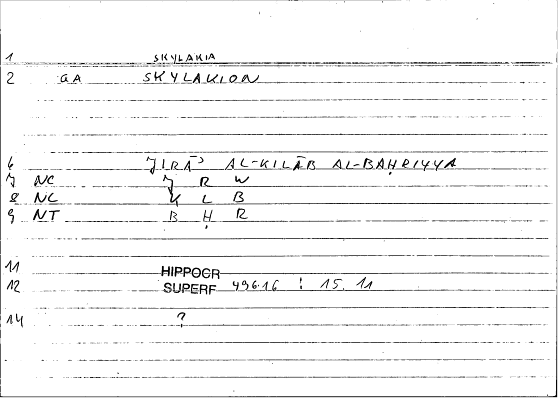 1 SKYLAKIA
2 GA SKYLAKION
6 JIRĀʾ AL-KILĀB AL-BAḤRIYYA
7 NC J R W
8 NC K L B
9 NT B Ḥ R
11 HIPPOCR
12 SUPERF 496.16 : 15.11
14 ?